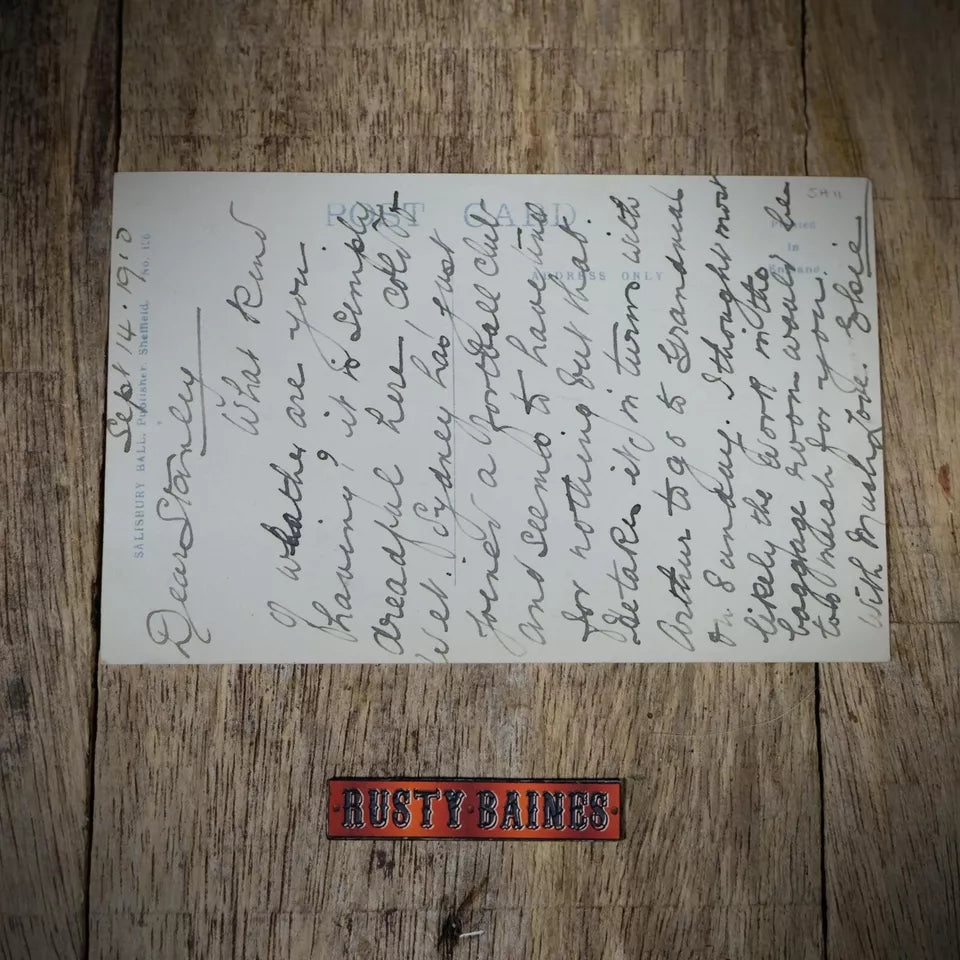 Sept 14. 1910
SALISBURY HALL, Publisher, Sheffield. No. 126
Dear Stanley
What kind
of whather are you
having, it is simply
dreadful here, cold &
wet. Sydney has just
joined a football club
and seems to have time
for nothing but that.
He takes it in turns with
Arthur to go to Grandmas
on Sunday. I thought most
likely the work in the
baggage room would be
too much for you.
With Much Love. Elsie
POST CARD
ADDRESS ONLY
Printed
in
SH11
RUSTY BAINES